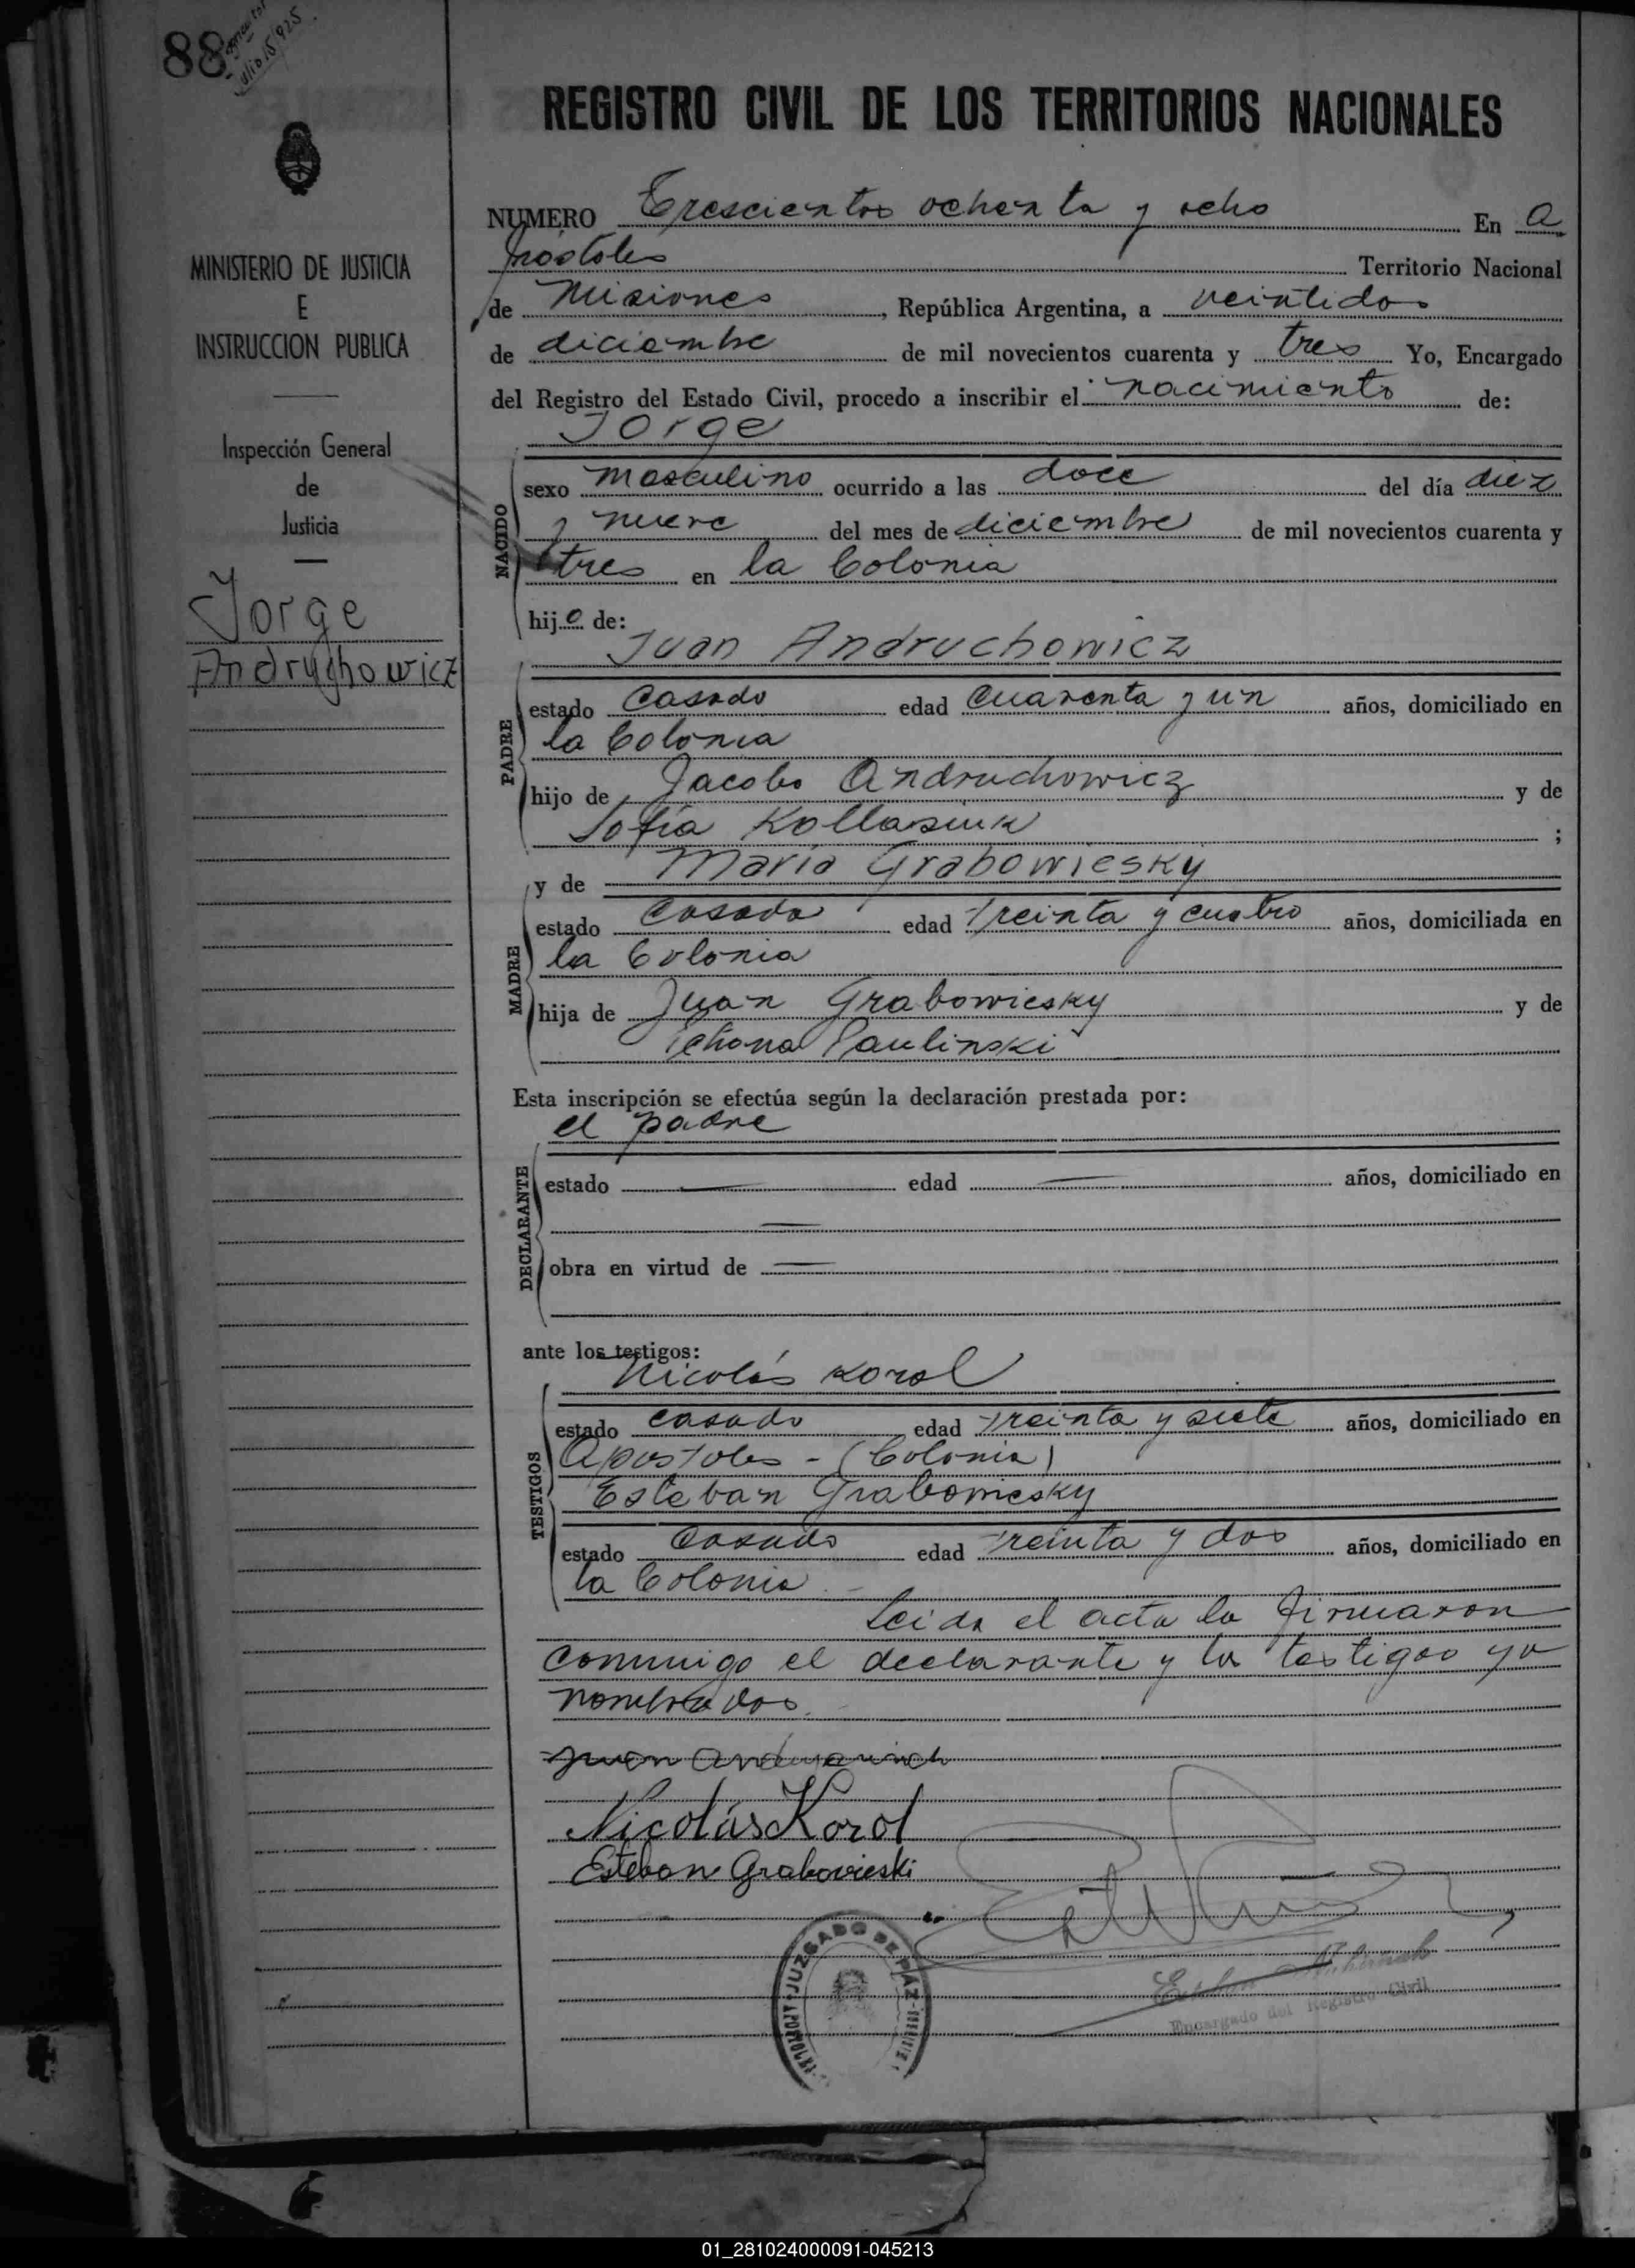 88
REGISTRO CIVIL DE LOS TERRITORIOS NACIONALES
MINISTERIO DE JUSTICIA
E
INSTRUCCION PUBLICA
Inspección General
de
Justicia
Jorge
Andruchowicz
NUMERO Trescientos ochenta y ocho En A
póstoles Territorio Nacional
de Misiones, República Argentina, a veintidos
de diciembre de mil novecientos cuarenta y tres Yo, Encargado
del Registro del Estado Civil, procedo a inscribir el nacimiento de:
Jorge
NACIDO
sexo masculino ocurrido a las doce del día diez
y nueve del mes de diciembre de mil novecientos cuarenta y
tres en la Colonia
hijo de:
Juan Andruchowicz
PADRE
estado Casado edad cuarenta y un años, domiciliado en
la Colonia
hijo de Jacobo Andruchowicz y de
Sofía Kollasiuk ;
y de María Grabowiesky
MADRE
estado Casada edad treinta y cuatro años, domiciliada en
la Colonia
hija de Juan Grabowiesky y de
Paulinski
Esta inscripción se efectúa según la declaración prestada por:
el padre
DECLARANTE
estado — edad — años, domiciliado en
—
obra en virtud de —
ante los testigos:
Nicolás Korol
TESTIGOS
estado casado edad treinta y siete años, domiciliado en
Apostoles - (Colonia)
Esteban Grabowiesky
estado casado edad treinta y dos años, domiciliado en
la Colonia. -
Leida el acta la firmaron
conmigo el declarante y los testigos ya
nombrados.
Juan
Nicolás Korol
Esteban Grabovieski
JUZGADO DE PAZ
Encargado del Registro Civil
01_281024000091-045213